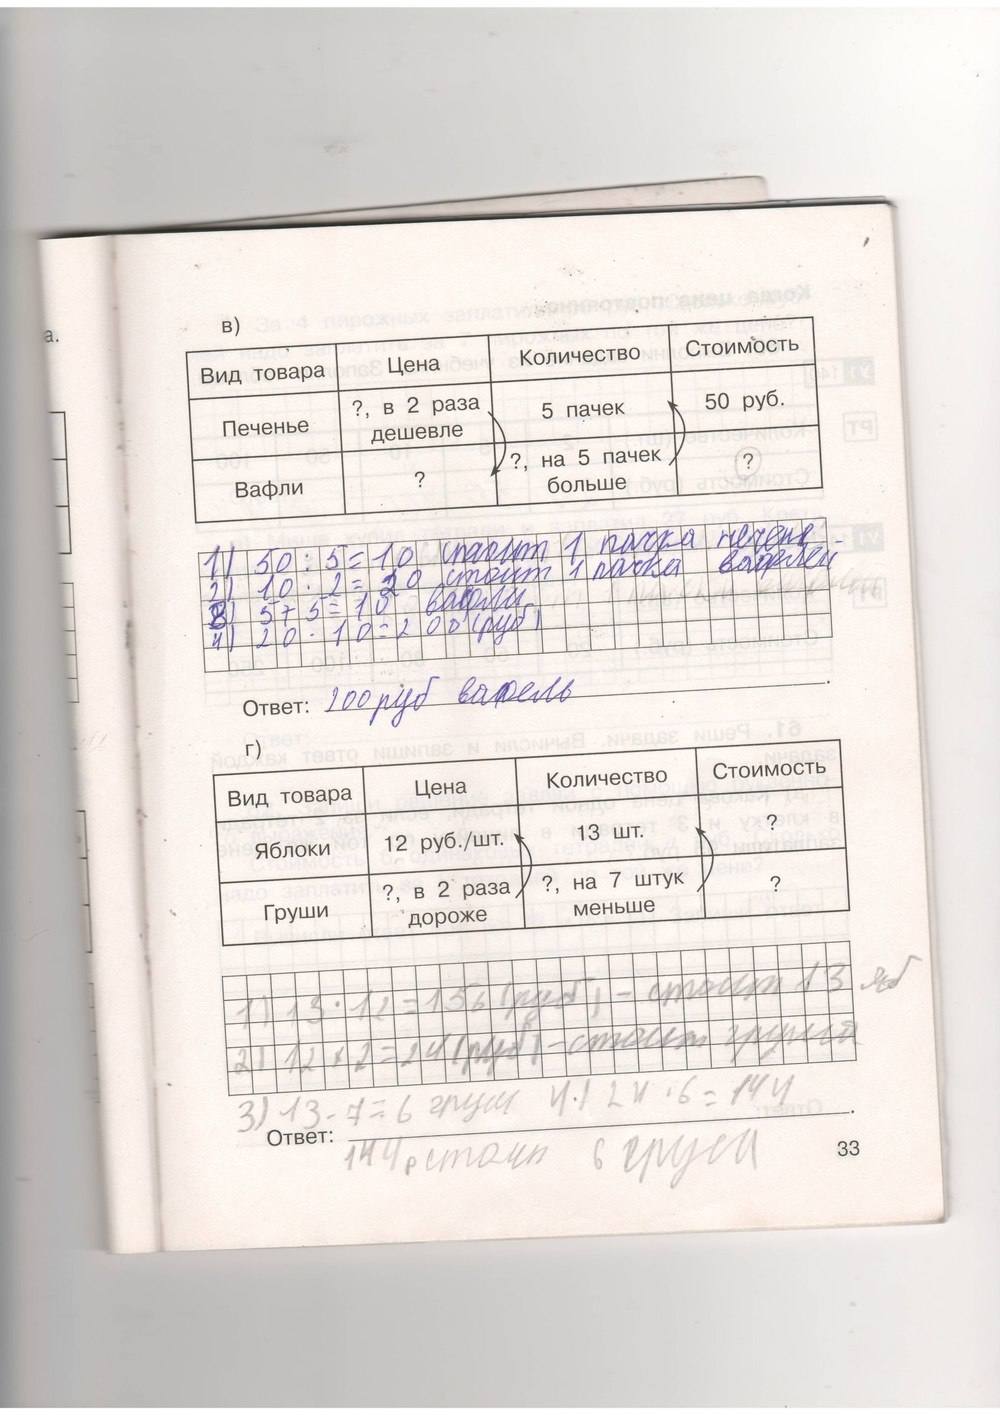 а.
в)
Вид товара Цена Количество Стоимость
Печенье ?, в 2 раза дешевле 5 пачек 50 руб.
Вафли ? ?, на 5 пачек больше ?
1) 50 : 5 = 10 стоит 1 пачка печенья
2) 10 · 2 = 20 стоит 1 пачка вафлей
3) 5 + 5 = 10 вафли
4) 20 · 10 = 200 (руб)
Ответ: 200 руб вафель.
г)
Вид товара Цена Количество Стоимость
Яблоки 12 руб./шт. 13 шт. ?
Груши ?, в 2 раза дороже ?, на 7 штук меньше ?
1) 13 · 12 = 156 (руб) - стоят 13 яб
2) 12 · 2 = 24 (руб) - стоит груша
3) 13 - 7 = 6 груш 4) 24 · 6 = 144
Ответ:
144 р стоят 6 груш
33